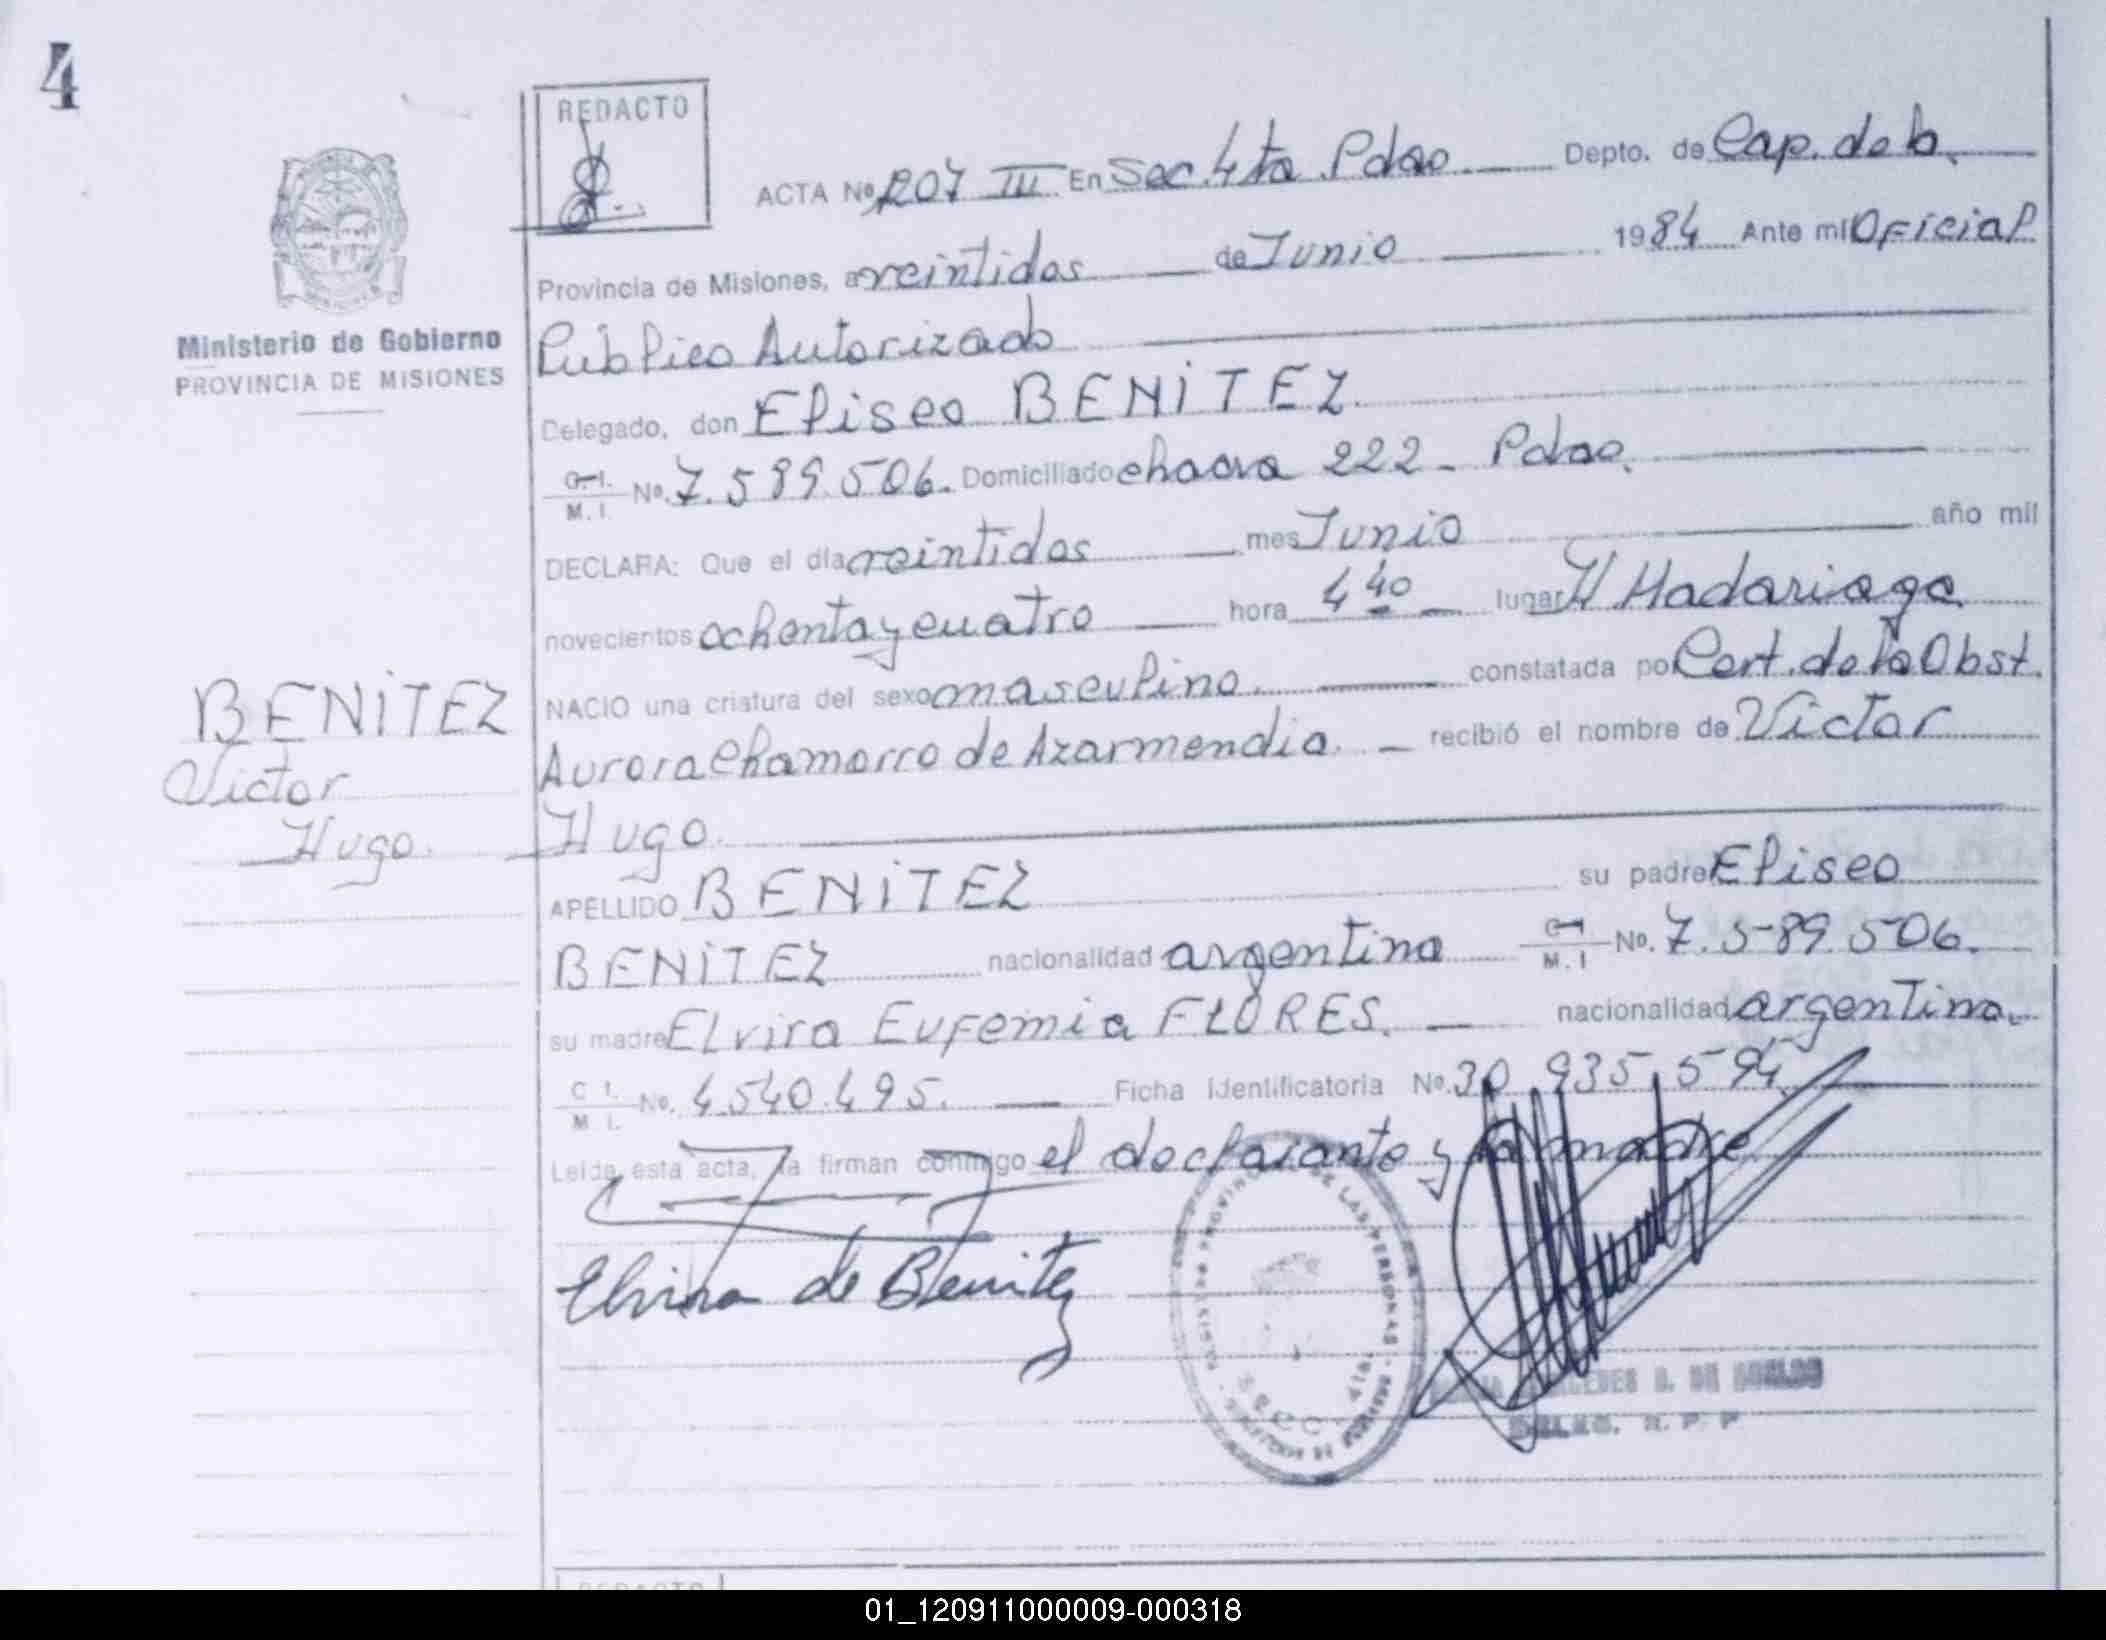 4
REDACTO
ACTA Nº 1207 III En Sec. 4ta Pdas Depto. de Cap. de la
Provincia de Misiones, a veintidos de Junio 1984 Ante mi Oficial
Publico Autorizado
Ministerio de Gobierno
PROVINCIA DE MISIONES
Delegado, don Eliseo BENITEZ.
C. I. M. I. Nº. 7.589.506. Domiciliado chacra 222 - Pdas.
DECLARA: Que el día veintidos mes Junio año mil
novecientos ochenta y cuatro hora 4 40 lugar H Madariaga.
NACIO una criatura del sexo masculino. constatada por Cert. de la Obst.
Aurora Chamorro de Azarmendia. recibió el nombre de Victor
Hugo.
BENITEZ
Victor
Hugo.
APELLIDO BENITEZ su padre Eliseo
BENITEZ nacionalidad argentina C. I. M. I Nº. 7.589.506.
su madre Elvira Eufemia FLORES. nacionalidad argentina.
C I. M I. Nº. 4.540.495. Ficha Identificatoria Nº. 30.935.594
Leida esta acta, la firman conmigo el declarante y la madre
Elvira de Benitez
REGISTRO PROVINCIAL DE LAS PERSONAS
SECC. 4ta.
REDACTO
01_120911000009-000318